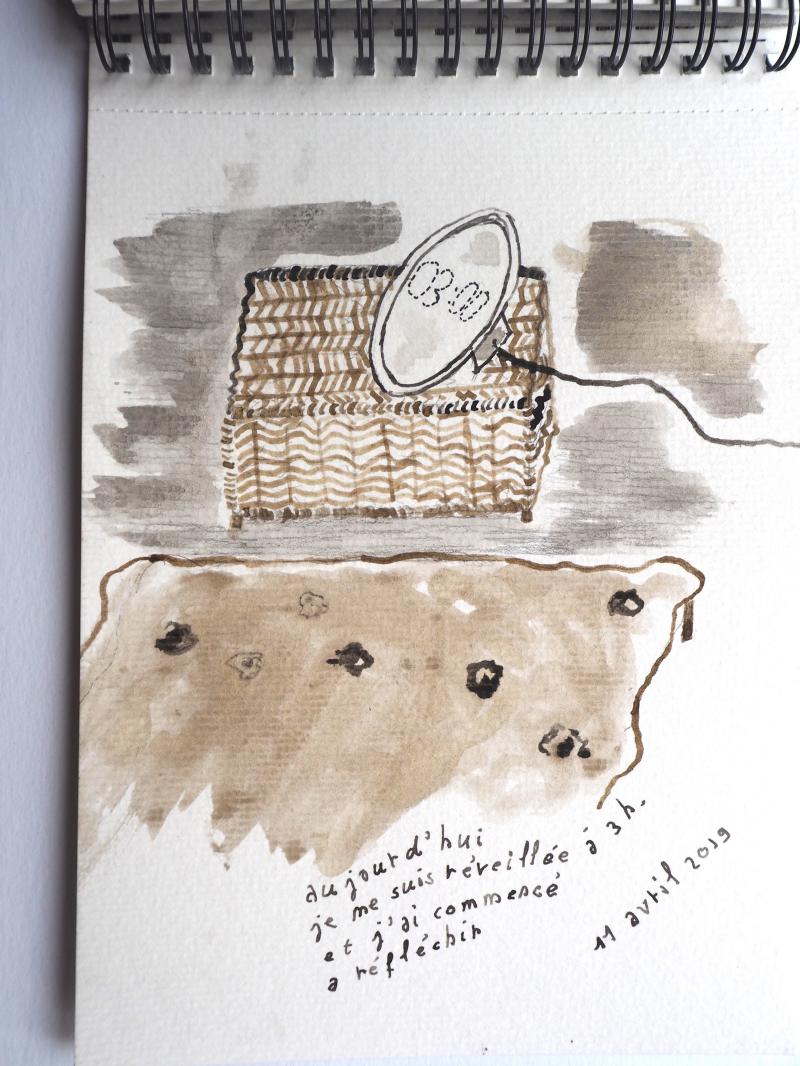 03:00
aujourd'hui
je me suis réveillée à 3h.
et j'ai commencé
a réfléchir
11 avril 2019